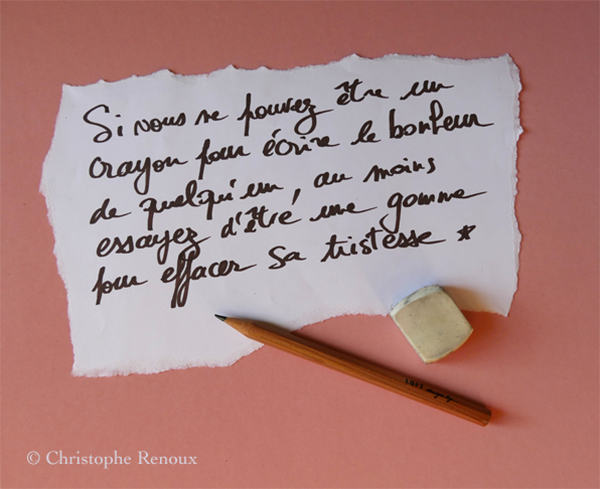 Si vous ne pouvez être un
crayon pour écrire le bonheur
de quelqu'un, au moins
essayez d'être une gomme
pour effacer sa tristesse *
© Christophe Renoux